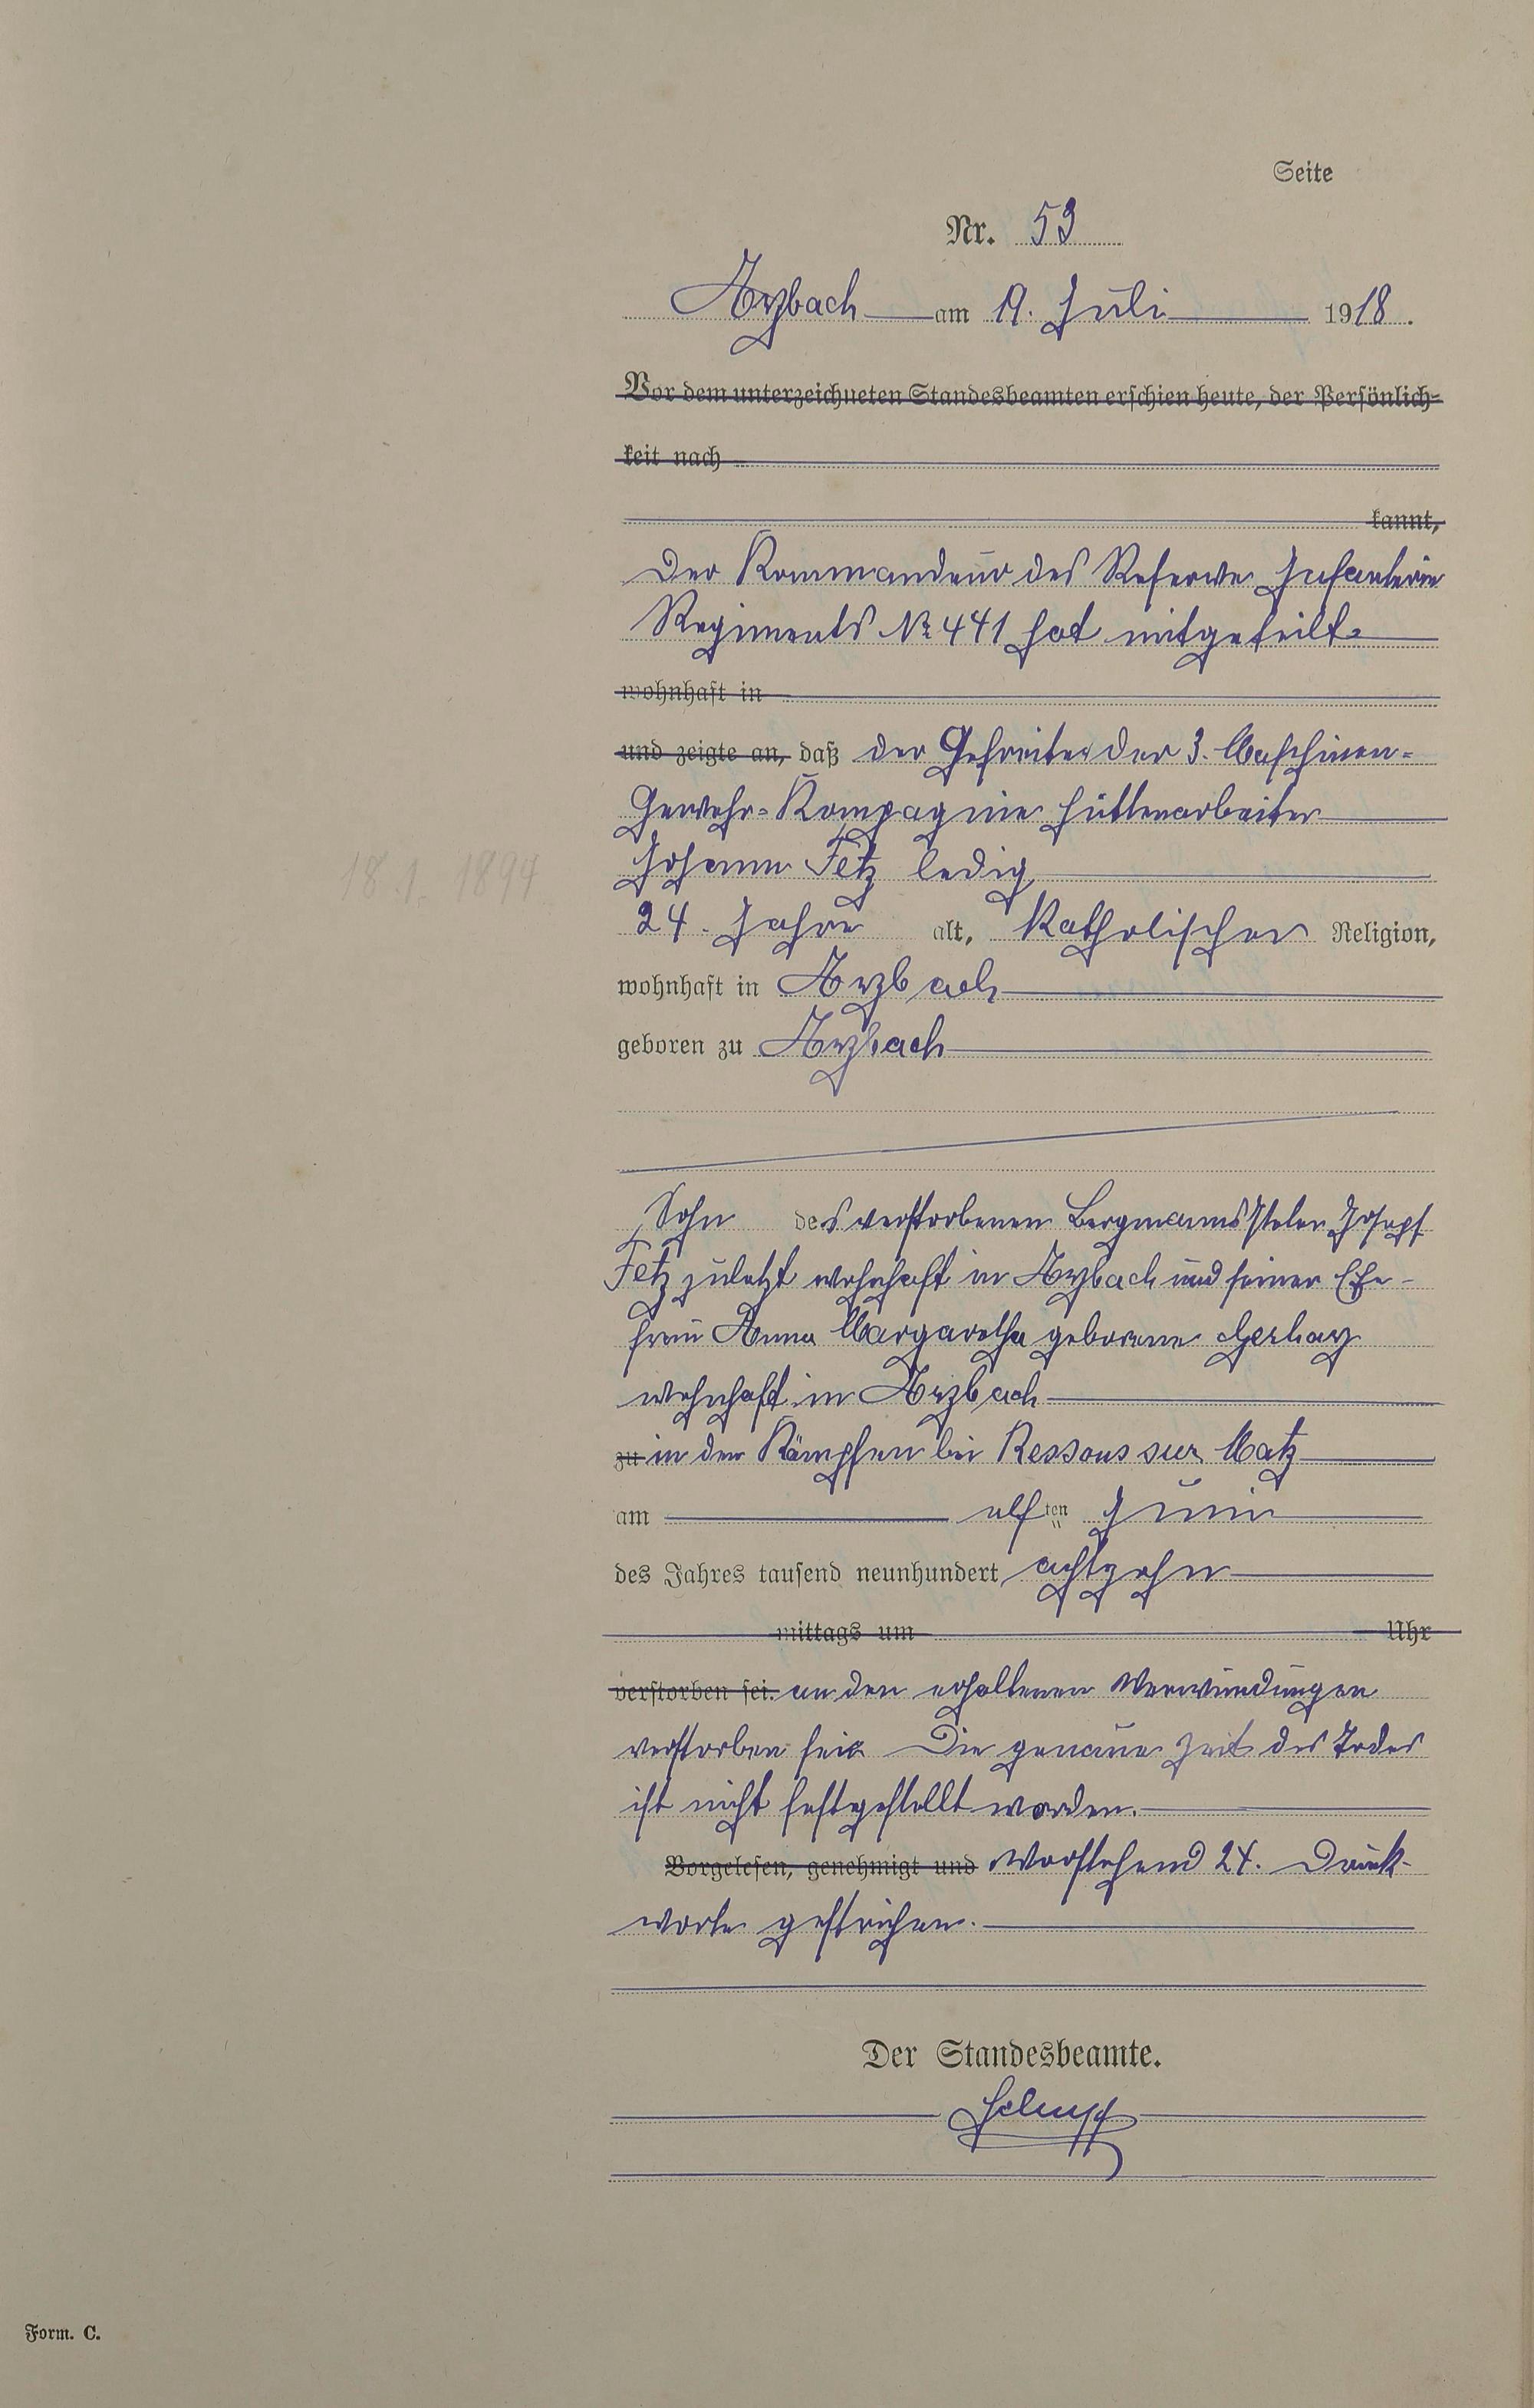 Seite
Nr. 53
Arzbach am 19. Juli 1918.
Vor dem unterzeichneten Standesbeamten erschien heute, der Persönlich-
keit nach
kannt,
Der Kommandeur des Reserve Infanterie
Regiments Nr 441 hat mitgeteilt
wohnhaft in
und zeigte an, daß der Gefreite der 3. Maschinen-
Gewehr-Kompagnie Hüttenarbeiter
Johann Fetz ledig
18.1.1894
24. Jahre alt, Katholischer Religion,
wohnhaft in Arzbach
geboren zu Arzbach
Sohn des verstorbenen Bergmanns Joseph
Fetz zuletzt wohnhaft in Arzbach und seiner Ehe-
frau Anna Margaretha geborene
wohnhaft in Arzbach
zu in den Kämpfen bei Ressons sur Matz
am elften Juni
des Jahres tausend neunhundert achtzehn
mittags um Uhr
verstorben sei. an den erhaltenen Verwundungen
verstorben sei. Die genaue Zeit des Todes
ist nicht festgestellt worden.
Vorgelesen, genehmigt und Vorstehend 24. Druck-
worte gestrichen.
Der Standesbeamte.
Form. C.